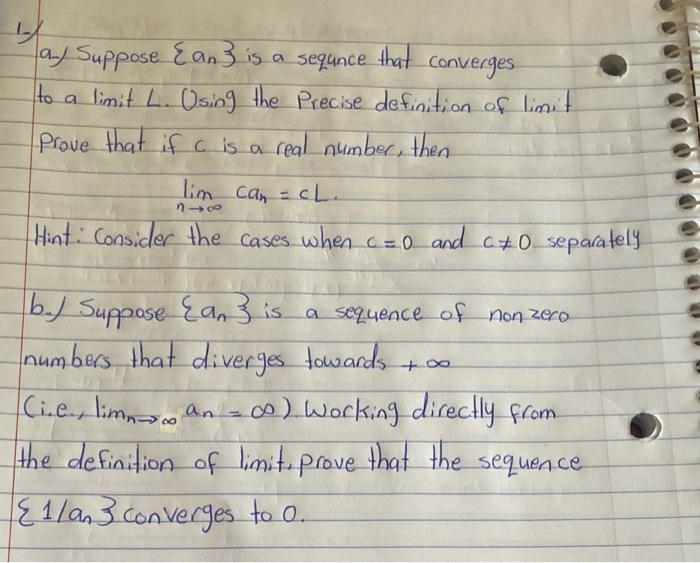 1-)
a-) Suppose {an} is a sequnce that converges
to a limit L. Using the Precise definition of limit
Prove that if c is a real number, then
lim n→∞ can = cL.
Hint: Consider the cases when c = 0 and c ≠ 0 separately
b-) Suppose {an} is a sequence of nonzero
numbers that diverges towards +∞
(i.e., limn→∞ an = ∞). Working directly from
the definition of limit, prove that the sequence
{1/an} converges to 0.